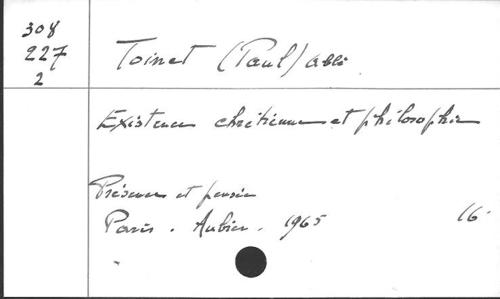 308
227
2
Toinet (Paul) abbé
Existence chrétienne et philosophie
Présence et pensée
Paris. Aubier. 1965 16